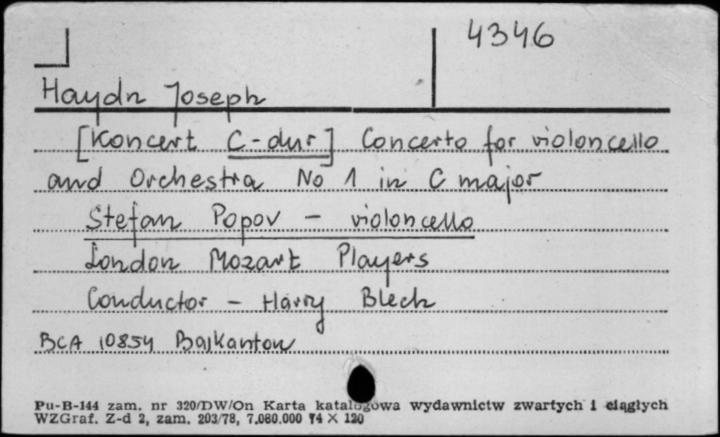 4346
Haydn Joseph
[Koncert C-dur] Concerto for violoncello
and Orchestra No 1 in C major
Stefan Popov - violoncello
London Mozart Players
Conductor - Harry Blech
BCA 10854 Bałkanton
Pu-B-144 zam. nr 320/DW/On Karta katalogowa wydawnictw zwartych i ciągłych
WZGraf. Z-d 2, zam. 203/78, 7.080.000 74 X 120